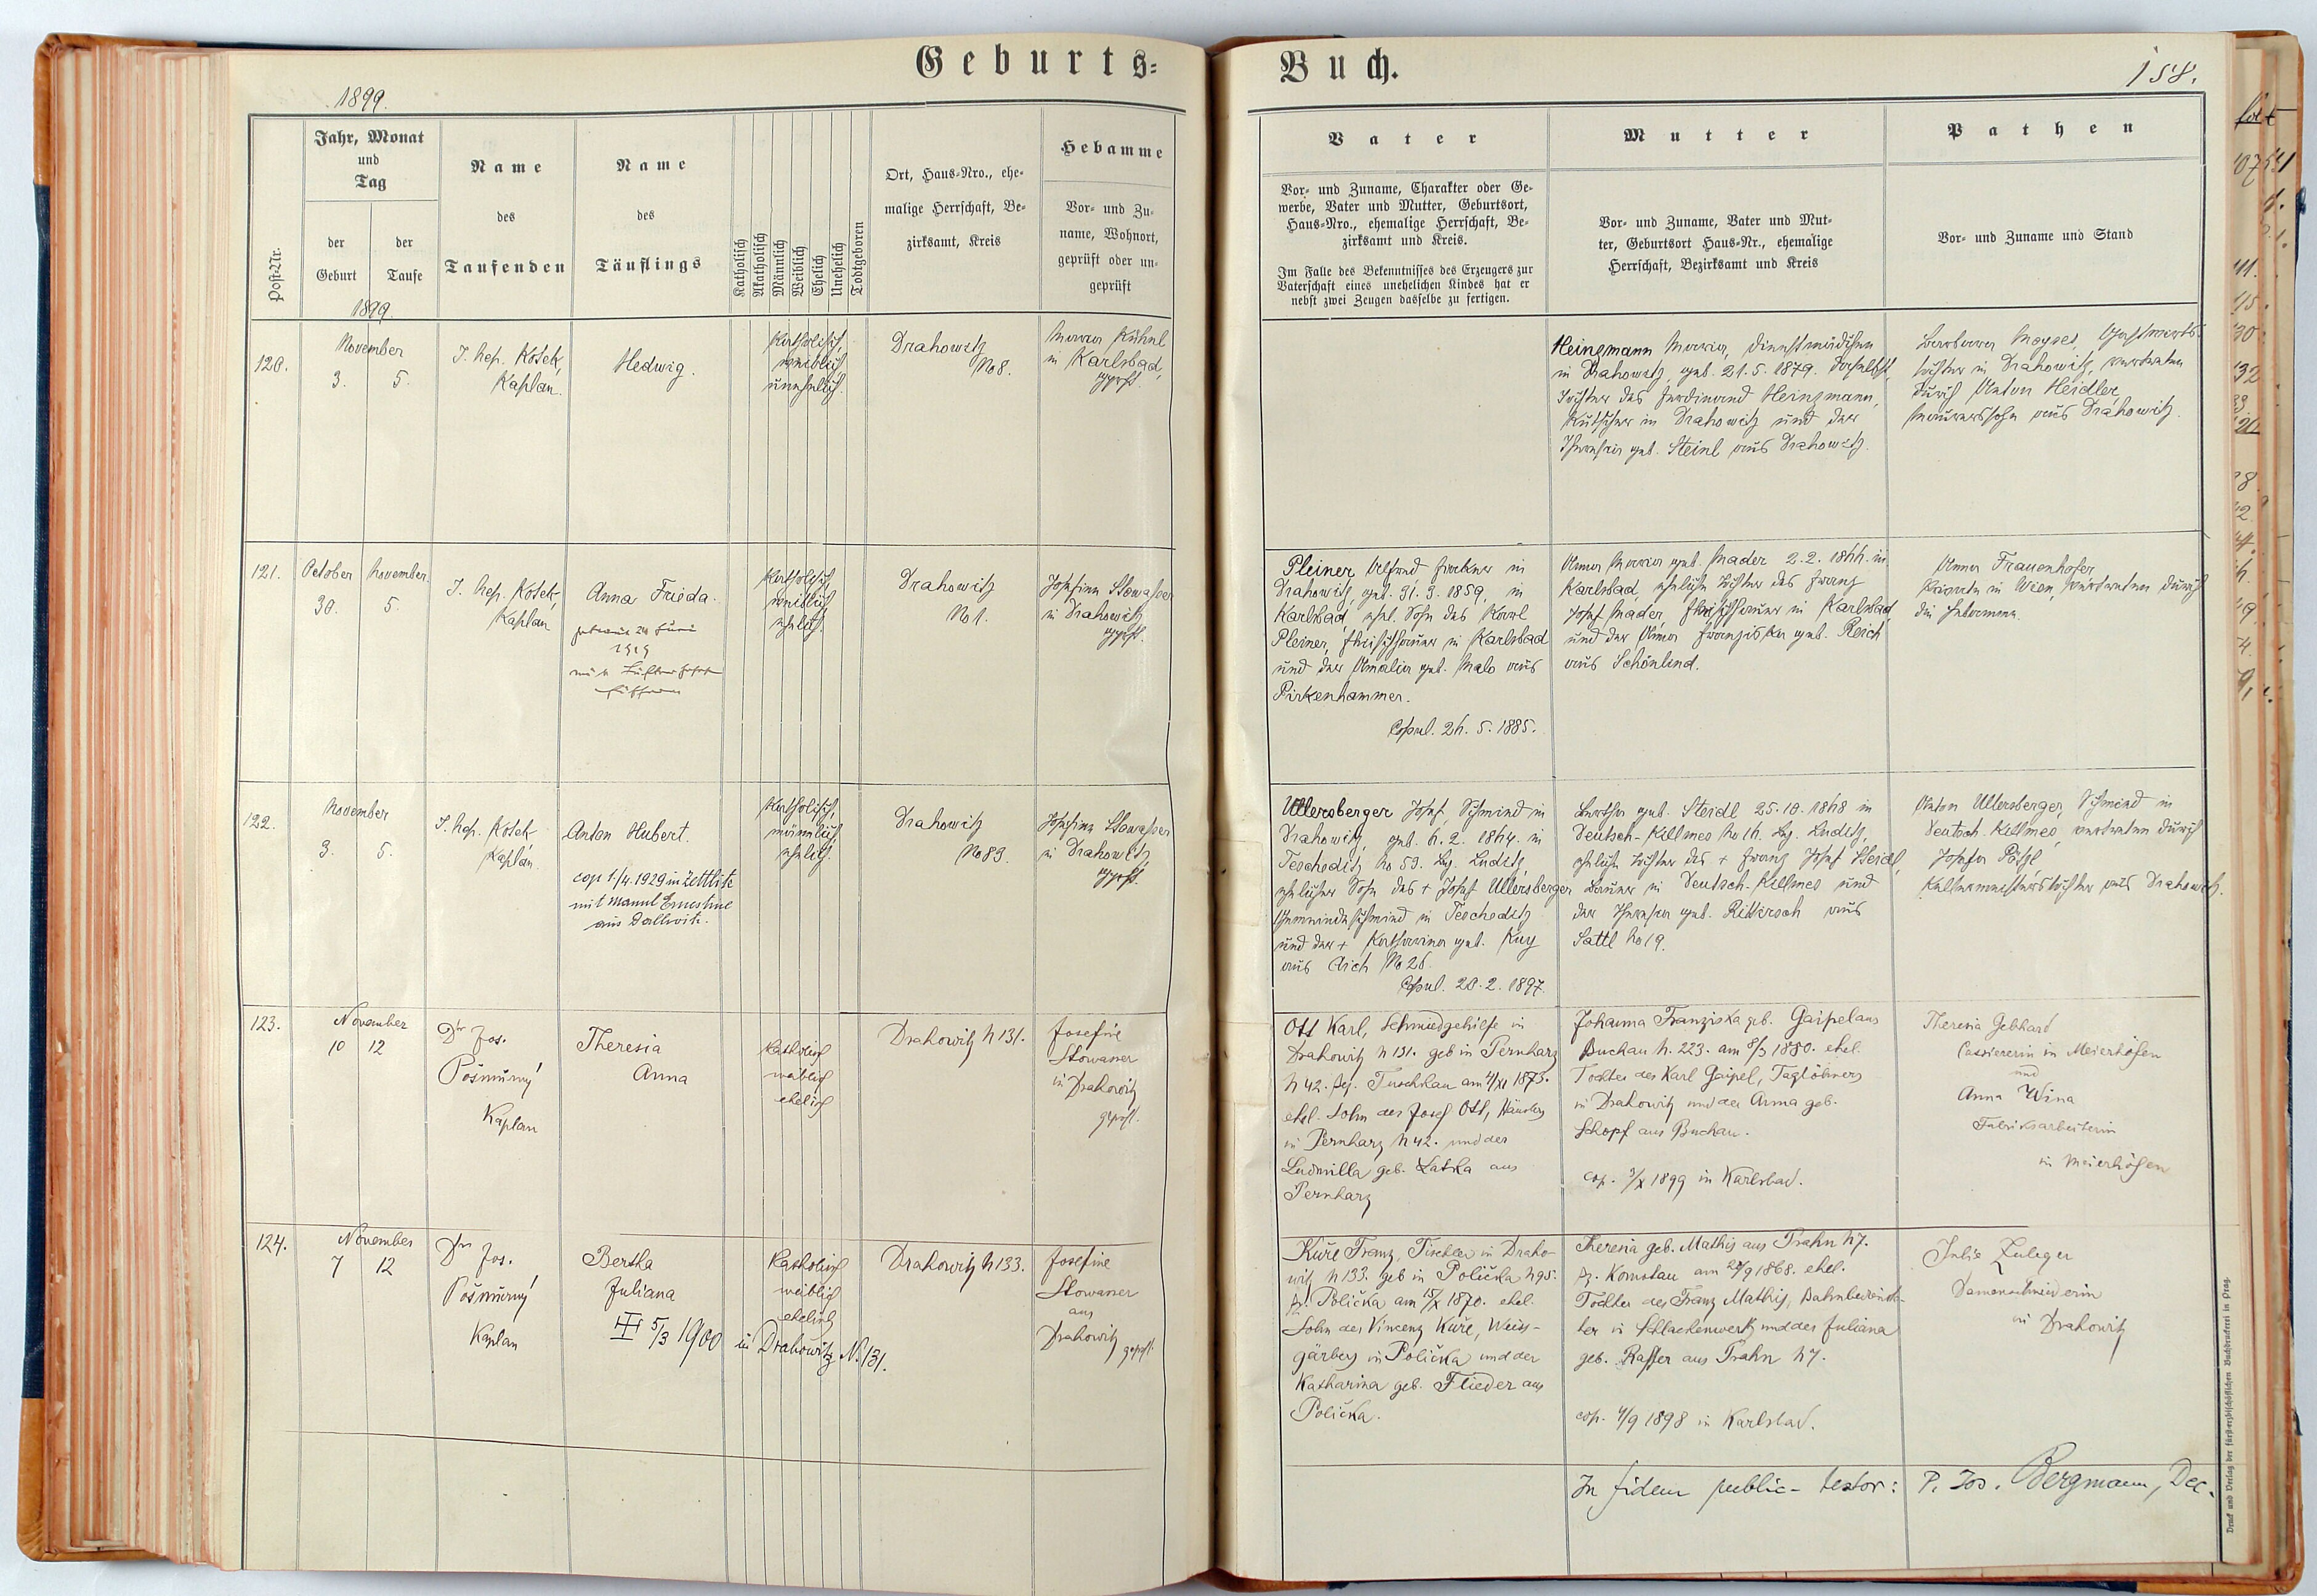 Geburts=
Buch.
158.
1899.
Post-Nr.
Jahr, Monat
und
Tag
der
Geburt
der
Taufe
1899.
Name
des
Taufenden
Name
des
Täuflings
Katholisch
Akatholisch
Männlich
Weiblich
Ehelich
Unehelich
Todtgeboren
Ort, Haus-Nro., ehe-
malige Herrschaft, Be-
zirksamt, Kreis
Hebamme
Vor- und Zu-
name, Wohnort,
geprüft oder un-
geprüft
Vater
Vor- und Zuname, Charakter oder Ge-
werbe, Vater und Mutter, Geburtsort,
Haus-Nro., ehemalige Herrschaft, Be-
zirksamt und Kreis.
Im Falle des Bekenntnisses des Erzeugers zur
Vaterschaft eines unehelichen Kindes hat er
nebst zwei Zeugen dasselbe zu fertigen.
Mutter
Vor- und Zuname, Vater und Mut-
ter, Geburtsort Haus-Nr., ehemalige
Herrschaft, Bezirksamt und Kreis
Pathen
Vor- und Zuname und Stand
120.
November
3. 5.
J. Nep. Kosek,
Kaplan.
Hedwig.
Katholisch,
weiblich,
unehelich.
Drahowitz
No 8.
Maria Kühnl
in Karlsbad,
gprft.
Heinzmann Maria, Dienstmädchen
in Drahowitz, geb. 21.5.1879. daselbst,
Tochter des Ferdinand Heinzmann,
Kutscher in Drahowitz und der
Theresia geb. Steinl aus Drahowitz.
Barbara Moyses, Gastwirts-
tochter in Drahowitz, vertreten
durch Anton Heidler
Maurerssohn aus Drahowitz.
121.
October November
30. 5.
J. Nep. Kosek,
Kaplan
Anna Frieda.
1919
Katholisch
weiblich
ehelich.
Drahowitz
No 1.
Josefina Stowasser
in Drahowitz
gprft.
Pleiner Alfred in
Drahowitz, geb. 31.3.1859, in
Karlsbad, ehel. Sohn des Karl
Pleiner, Fleischhauer in Karlsbad
und der Amalia geb. Malo aus
Pirkenhammer.
Copul. 24.5.1885.
Anna Maria geb. Mader 2.2.1844 in
Karlsbad, eheliche Tochter des Franz
Josef Mader, Fleischhauer in Karlsbad,
und der Anna Franziska geb. Reich
aus Schönlind.
Anna Frauenhofer
Private in Wien, vertreten durch
die Hebamme.
122.
November
3. 5.
J. Nep. Kosek
Kaplan
Anton Hubert.
cop 1./4.1929 in Zettlitz
mit Mannl Ernestine
aus Dallwitz.
Katholisch,
männlich,
ehelich.
Drahowitz
No 83.
Josefina Stowasser
in Drahowitz,
gprft.
Ullersberger Josef, Schmied in
Drahowitz, geb. 6.2.1864. in
Teschetitz No 53. Bz. Luditz,
ehelicher Sohn des + Josef Ullersberger
Gemeindeschmied in Teschetitz
und der + Katharina geb. Kuy
aus Aich No 26.
Copul. 20.2.1897.
Bertha geb. Steidl 25.10.1868 in
Deutsch-Killmes No 16. Bz. Luditz,
eheliche Tochter des + Franz Josef Steidl,
Bauer in Deutsch-Killmes und
der Theresia geb. Rittersch aus
Sattl No 19.
Anton Ullersberger, Schmied in
Deutsch-Killmes, vertreten durch
Josefa
Kellermeisterstochter aus Drahowitz.
123.
November
10 12
Dr Jos.
Pošmůrný
Kaplan
Theresia
Anna
Katholisch
weiblich
ehelich
Drahowitz N 131.
Josefine
Stowasser
in Drahowitz
geprft.
Ott Karl, Schmiedgehilfe in
Drahowitz N 131. geb in Pernharz
N 42. Bz. Tuschkau am 4/XI 1873.
ehel. Sohn des Josef Ott, Häuslers
in Pernharz N 42. und der
Ludmilla geb. Latka aus
Pernharz
Johanna Franziska geb. Gaipel aus
Buchau N. 223. am 8/3 1880. ehel.
Tochter des Karl Gaipel, Taglöhners
in Drahowitz und der Anna geb.
Schopf aus Buchau.
cop. 3/X 1899 in Karlsbad.
Theresia Gebhard
Cassiererin in Meierhöfen
und
Anna Wina
Fabriksarbeiterin
in Meierhöfen
124.
November
7 12
Dr Jos.
Pošmůrný
Kaplan
Bertha
Juliana
5/3 1900 in Drahowitz N. 131.
Katholisch
weiblich
ehelich
Drahowitz N 133.
Josefine
Stowasser
aus
Drahowitz geprft.
Kuře Franz, Tischler in Draho-
witz N 133. geb in Polička N 95.
Bz. Polička am 15/X 1870. ehel.
Sohn des Vincenz Kuře, Weiss-
gärbers in Polička und der
Katharina geb. Flieder aus
Polička.
Theresia geb. Mathis aus Prahn N 7.
Bz. Komotau am 28/9 1868. ehel.
Tochter des Franz Mathis, Bahnbedienste-
ter in Schlackenwerth und der Juliana
geb. Raffer aus Prahn N 7.
cop. 4/9 1898 in Karlsbad.
Julie Zuleger
Damenschneiderin
in Drahowitz
In fidem public- testor: P. Jos. Bergmann, Dec.
Druck und Verlag der fürsterzbischöflichen Buchdruckerei in Prag.